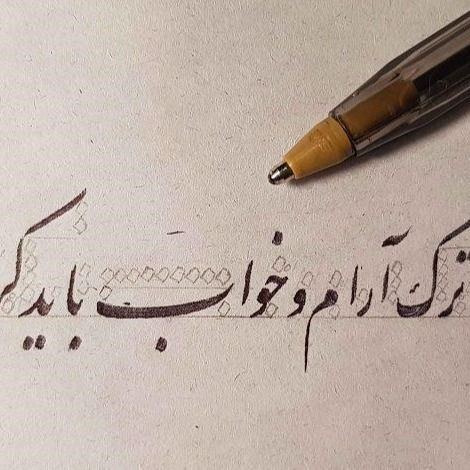 ترک آرام و خواب باید کر